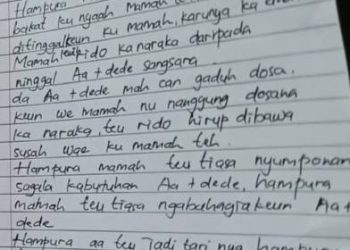 Hampura
bakat ku nyaah Mamah
ditinggalkeun ku mamah, karunya ka
Mamah rido ka naraka daripada
ninggal Aa + dede sangsara.
da Aa + dede mah can gaduh dosa.
keun we mamah nu nanggung dosana
ka naraka, teu rido hirup dibawa
susah wae ku mamah teh.
Hampura mamah teu tiasa nyumponan
sagala kabutuhan Aa + dede, hampura
mamah teu tiasa ngabahagiakeun Aa +
dede
Hampura aa teu Jadi tari nya